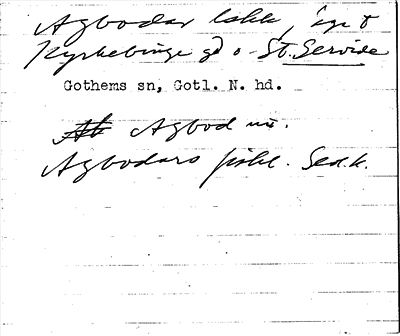 Agbodar lakk, äga t
Kyrkebinge gd o St. Servide
Gothems sn, Gotl. N. hd.
Agbod
Agbodars fiskl. Sed.k.